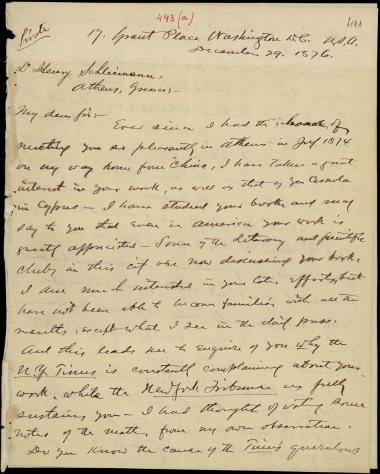 443 (a)
441
Private
17. Grant Place Washington D.C. U.S.A.
December 29. 1876.
Dr Henry Schliemann,
Athens, Greece:-
My dear Sir:-
Ever since I had the honor of
meeting you so pleasantly in Athens in July 1874
on my way home from China, I have taken a great
interest in your work, as well as that of Gen Cesnola
in Cyprus - I have studied your books and may
say to you that even in America your work is
greatly appreciated - Some of the literary and scientific
clubs in this city are now discussing your book.
I am much interested in your later efforts, but
have not been able to become familiar with all the
results, except what I see in the daily press.
And this leads me to enquire of you why the
N.Y. Times is constantly complaining about your
work, while the New York Tribune as fully
sustains you - I had thought of writing some
notes of the matter from my own observation.
Do you know the cause of the Times querulous